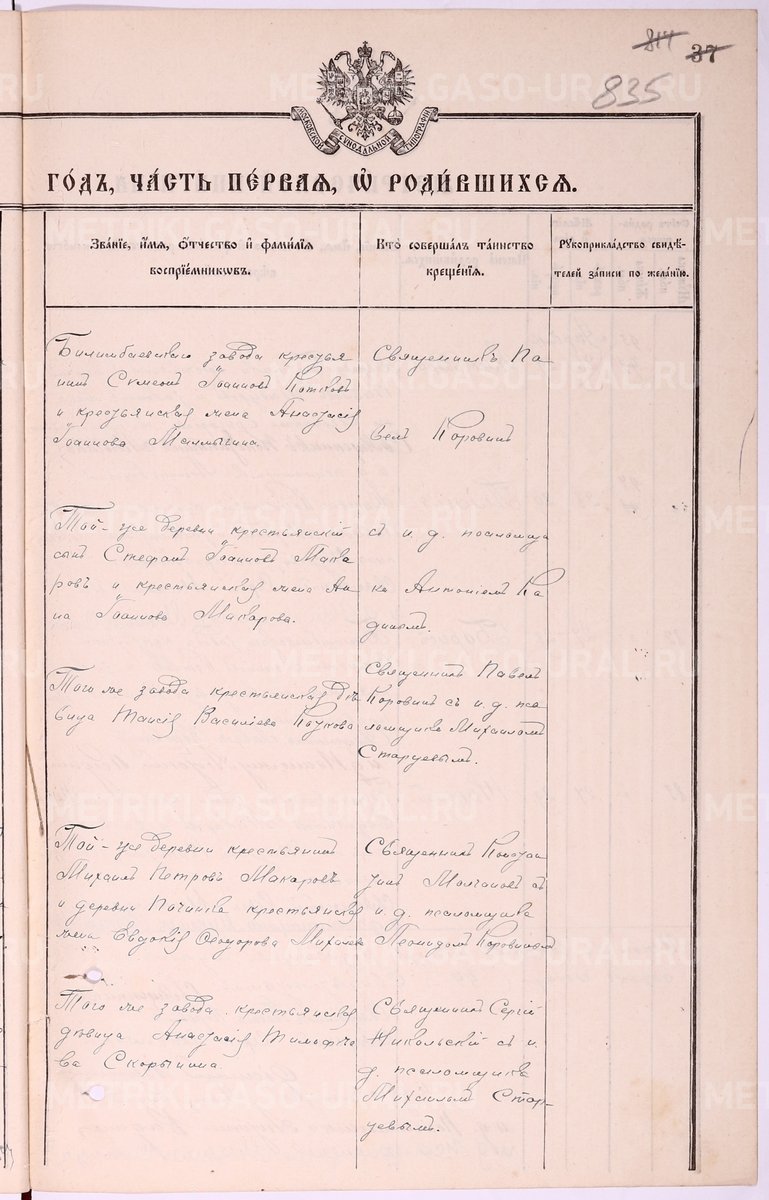 817 37
835
МОСКОВСКОЙ СѴНОДАЛЬНОЙ ТИПОГРАФІИ
ГО́ДЪ, ЧА́СТЬ ПЕ́РВАЯ, Ѡ҆ РОДИ́ВШИХСЯ.
Зва́нїе, и҆́мя, ѻ҆́тчество и҆ фами́лїя
воспрїе́мникѡвъ.
Кто̀ соверша́лъ та́инство
креще́нїя.
Рꙋкоприкла́дство свидѣ́-
телей за́писи по жела́нїю.
Билимбаевскаго завода крестья
нинъ Сѵмеонъ Іоанновъ Котковъ
и крестьянская жена Анастасія
Іоаннова Малмыгина.
Священникъ Па
велъ Коровинъ
Той-же деревни крестьянскій
сынъ Стефанъ Іоанновъ Мака
ровъ и крестьянская жена Ан
на Іоаннова Макарова.
съ и. д. псаломщи
ка Антоніемъ Ка
динемъ.
Того же завода крестьянская дѣ
вица Таисія Василіева Коукова
Священникъ Павелъ
Коровинъ съ и. д. пса
ломщика Михаиломъ
Старцевымъ.
Той-же деревни крестьянинъ
Михаилъ Петровъ Макаровъ
и деревни Починка крестьянская
жена Евдокія Ѳеодорова Михалева
Священникъ Констан
тинъ Молчановъ съ
и. д. псаломщика
Леонидомъ Коровинымъ
Того же завода крестьянская
дѣвица Анастасія Тимоѳѣе
ва Скорынина.
Священникъ Сергій
Никольскій съ и.
д. псаломщика
Михаиломъ Стар-
цевымъ.
METRIKI.GASO-URAL.RU